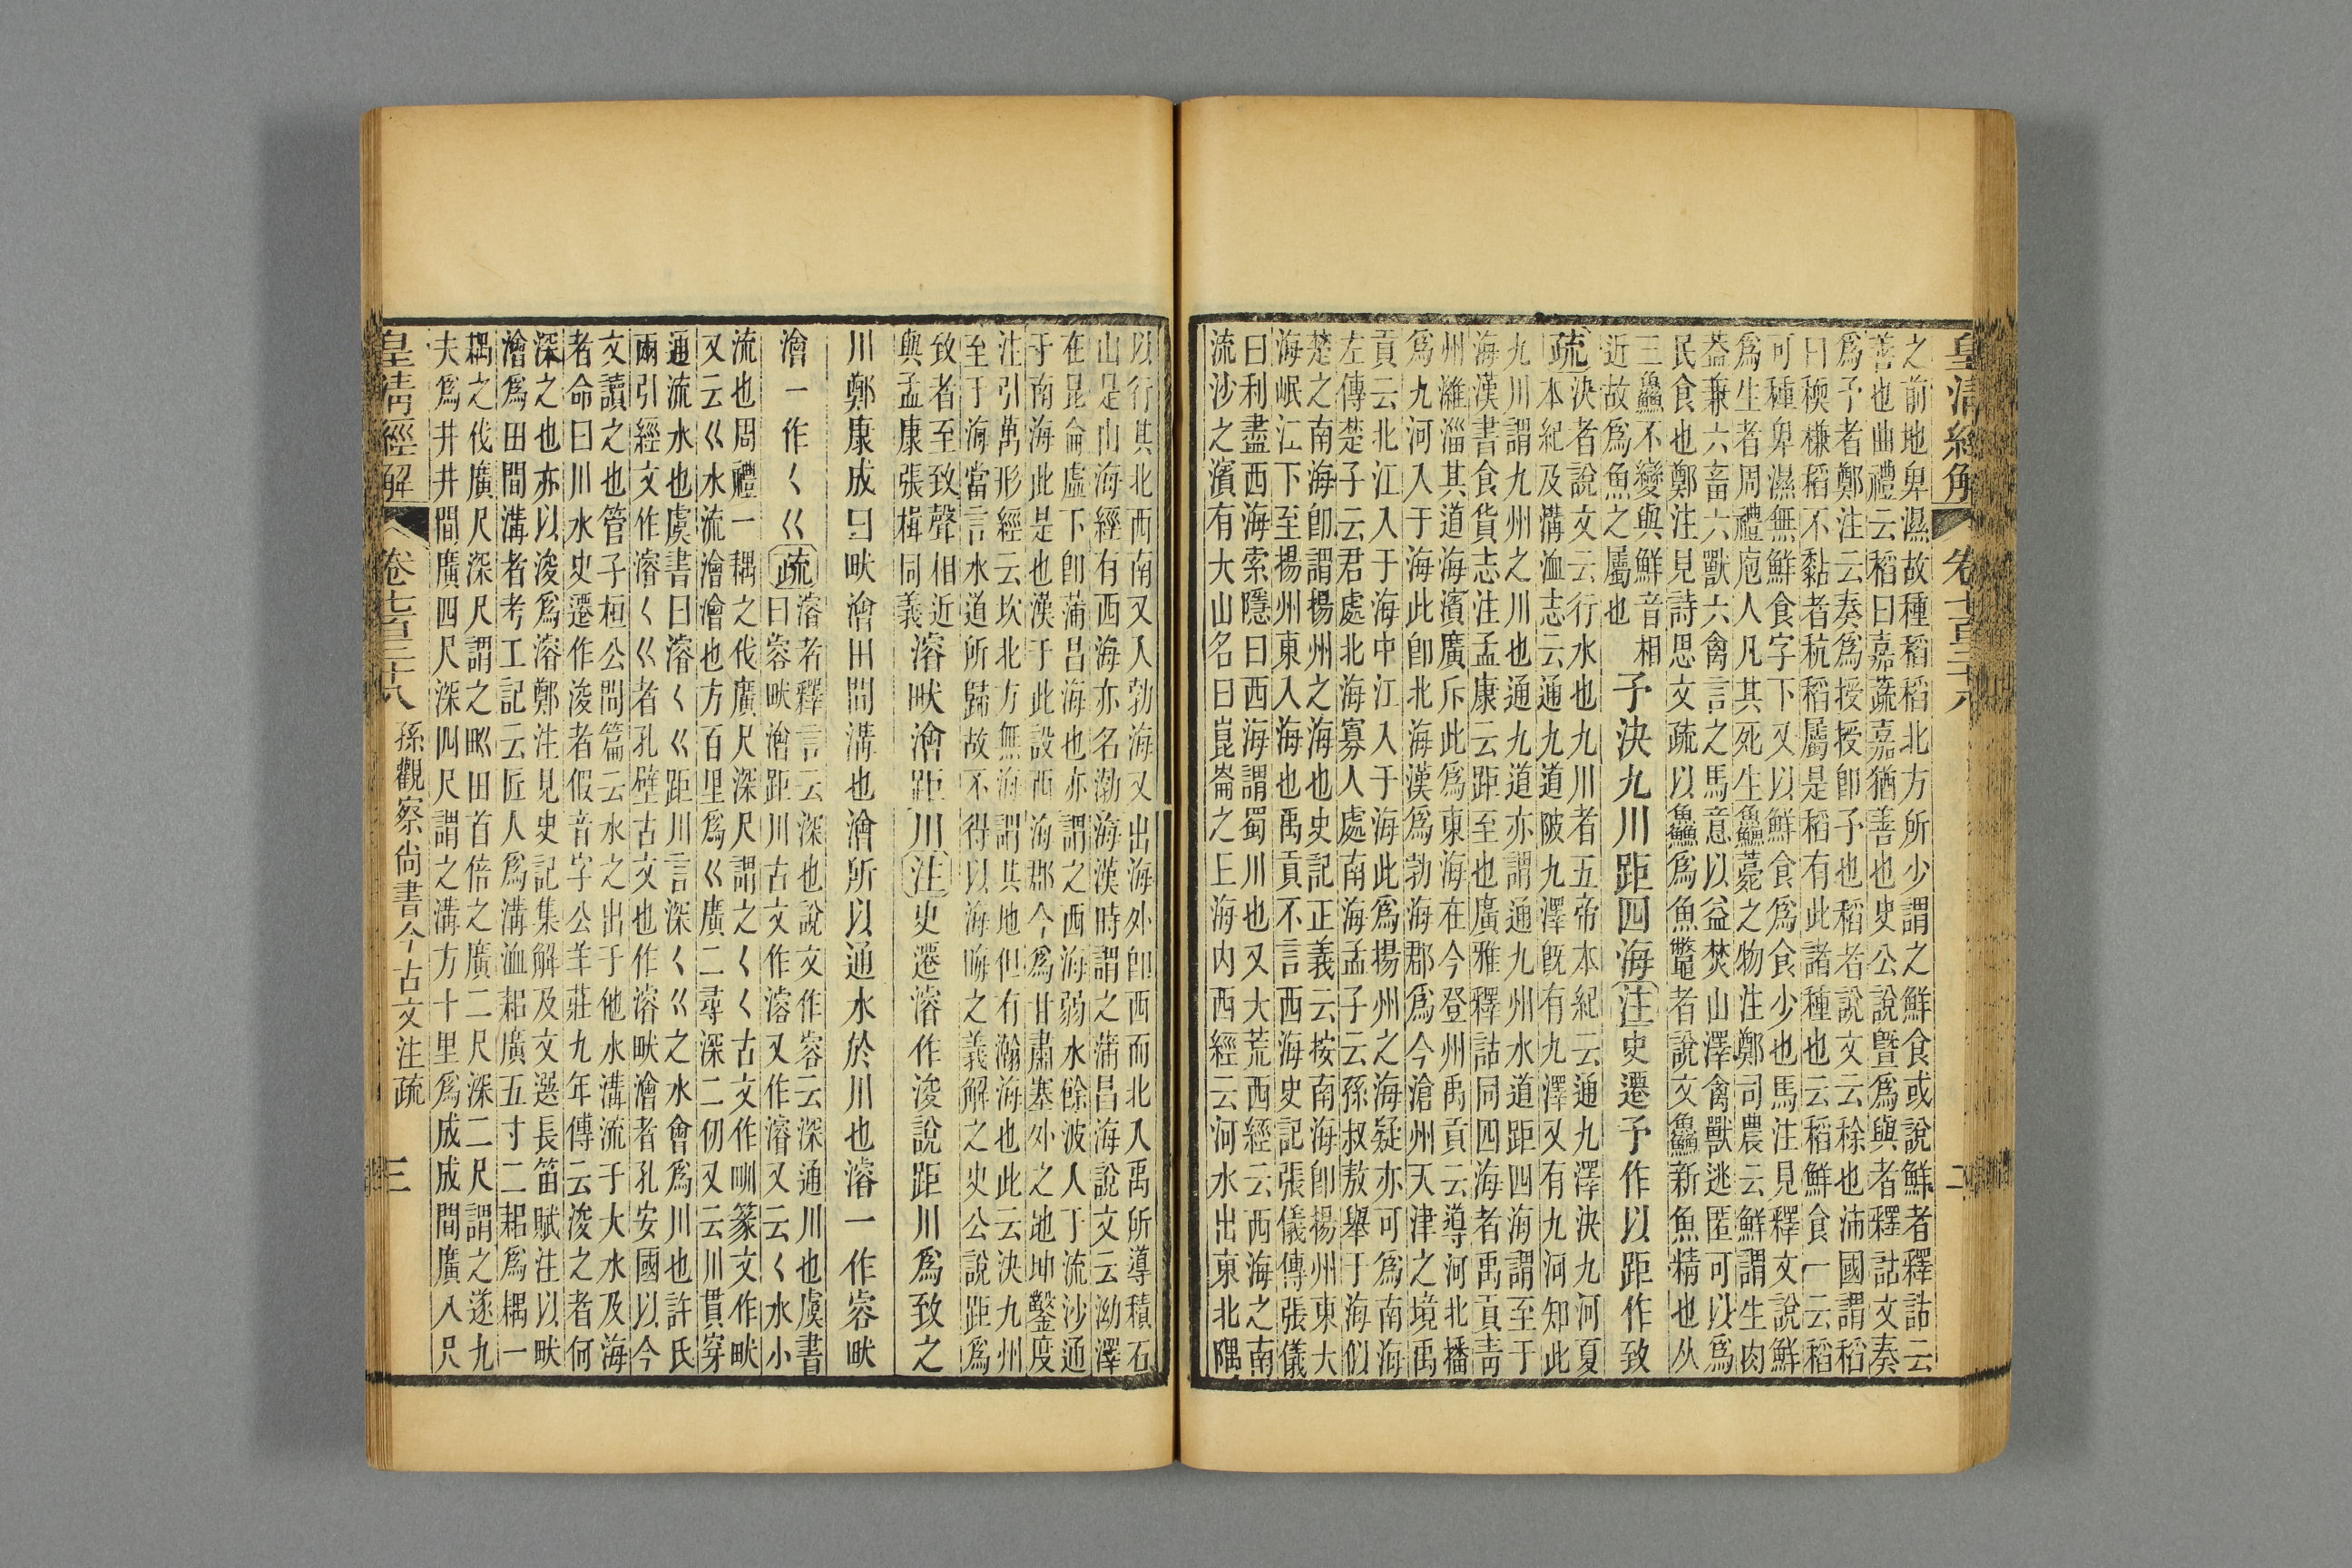 皇清經解 卷七百三十八 二
之前地卑濕故種稻稻北方所少謂之鮮食或說鮮者釋詁云
善也曲禮云稻曰嘉蔬嘉猶善也史公說暨爲與者釋詁文奏
爲予者鄭注云奏爲授授卽予也稻者說文云稌也沛國謂稻
曰稬稴稻不黏者秔稻屬是稻有此諸種也云稻鮮食一云稻
可種卑濕無鮮食字下又以鮮食爲食少也馬注見釋文說鮮
爲生者周禮庖人凡其死生鱻薧之物注鄭司農云鮮謂生肉
葢兼六畜六獸六禽言之馬意以益焚山澤禽獸逃匿可以爲
民食也鄭注見詩思文疏以鱻爲魚鼈者說文鱻新魚精也从
三鱻不變與鮮音相
近故爲魚之屬也
予決九川距四海注史遷予作以距作致
疏決者說文云行水也九川者五帝本紀云通九澤決九河夏
本紀及溝洫志云通九道陂九澤旣有九澤又有九河知此
九川謂九州之川也通九道亦謂通九州水道距四海謂至于
海漢書食貨志注孟康云距至也廣雅釋詁同四海者禹貢靑
州濰淄其道海濱廣斥此爲東海在今登州禹貢云導河北播
爲九河入于海此卽北海漢爲勃海郡爲今滄州天津之境禹
貢云北江入于海中江入于海此爲揚州之海疑亦可爲南海
左傳楚子云君處北海寡人處南海孟子云孫叔敖舉于海似
楚之南海卽謂揚州之海也史記正義云按南海卽揚州東大
海岷江下至揚州東入海也禹貢不言西海史記張儀傳張儀
曰利盡西海索隱曰西海謂蜀川也又大荒西經云西海之南
流沙之濱有大山名曰崑崙之王海內西經云河水出東北隅
以行其北西南又入勃海又出海外卽西而北入禹所導積石
山是山海經有西海亦名渤海漢時謂之蒲昌海說文云泑澤
在昆侖虛下卽蒲昌海也亦謂之西海弱水餘波入于流沙通
于南海此是也漢于此設西海郡今爲甘肅塞外之地坤鑿度
注引萬形經云坎北方無海謂其地但有瀚海也此云決九州
至于海當言水道所歸故不得以海晦之義解之史公說距爲
致者至致聲相近
與孟康張楫同義
濬畎澮距川注史遷濬作浚說距川爲致之
川鄭康成曰畎澮田間溝也澮所以通水於川也濬一作容畎
澮一作𡿨巜疏濬者釋言云深也說文作容云深通川也虞書
曰容畎澮距川古文作濬又作濬又云𡿨水小
流也周禮一耦之伐廣尺深尺謂之𡿨𡿨古文作甽篆文作畎
又云巜水流澮澮也方百里爲巜廣二尋深二仞又云川貫穿
通流水也虞書曰濬𡿨巜距川言深𡿨巜之水會爲川也許氏
兩引經文作濬𡿨巜者孔壁古文也作濬畎澮者孔安國以今
文讀之也管子桓公問篇云水之出于他水溝流于大水及海
者命曰川水史遷作浚者假音字公羊莊九年傳云浚之者何
深之也亦以浚爲濬鄭注見史記集解及文選長笛賦注以畎
澮爲田間溝者考工記云匠人爲溝洫耜廣五寸二耜爲耦一
耦之伐廣尺深尺謂之𤰕田首倍之廣二尺深二尺謂之遂九
夫爲井井間廣四尺深四尺謂之溝方十里爲成成間廣八尺
皇清經解 卷七百三十八 孫觀察尚書今古文注疏 三